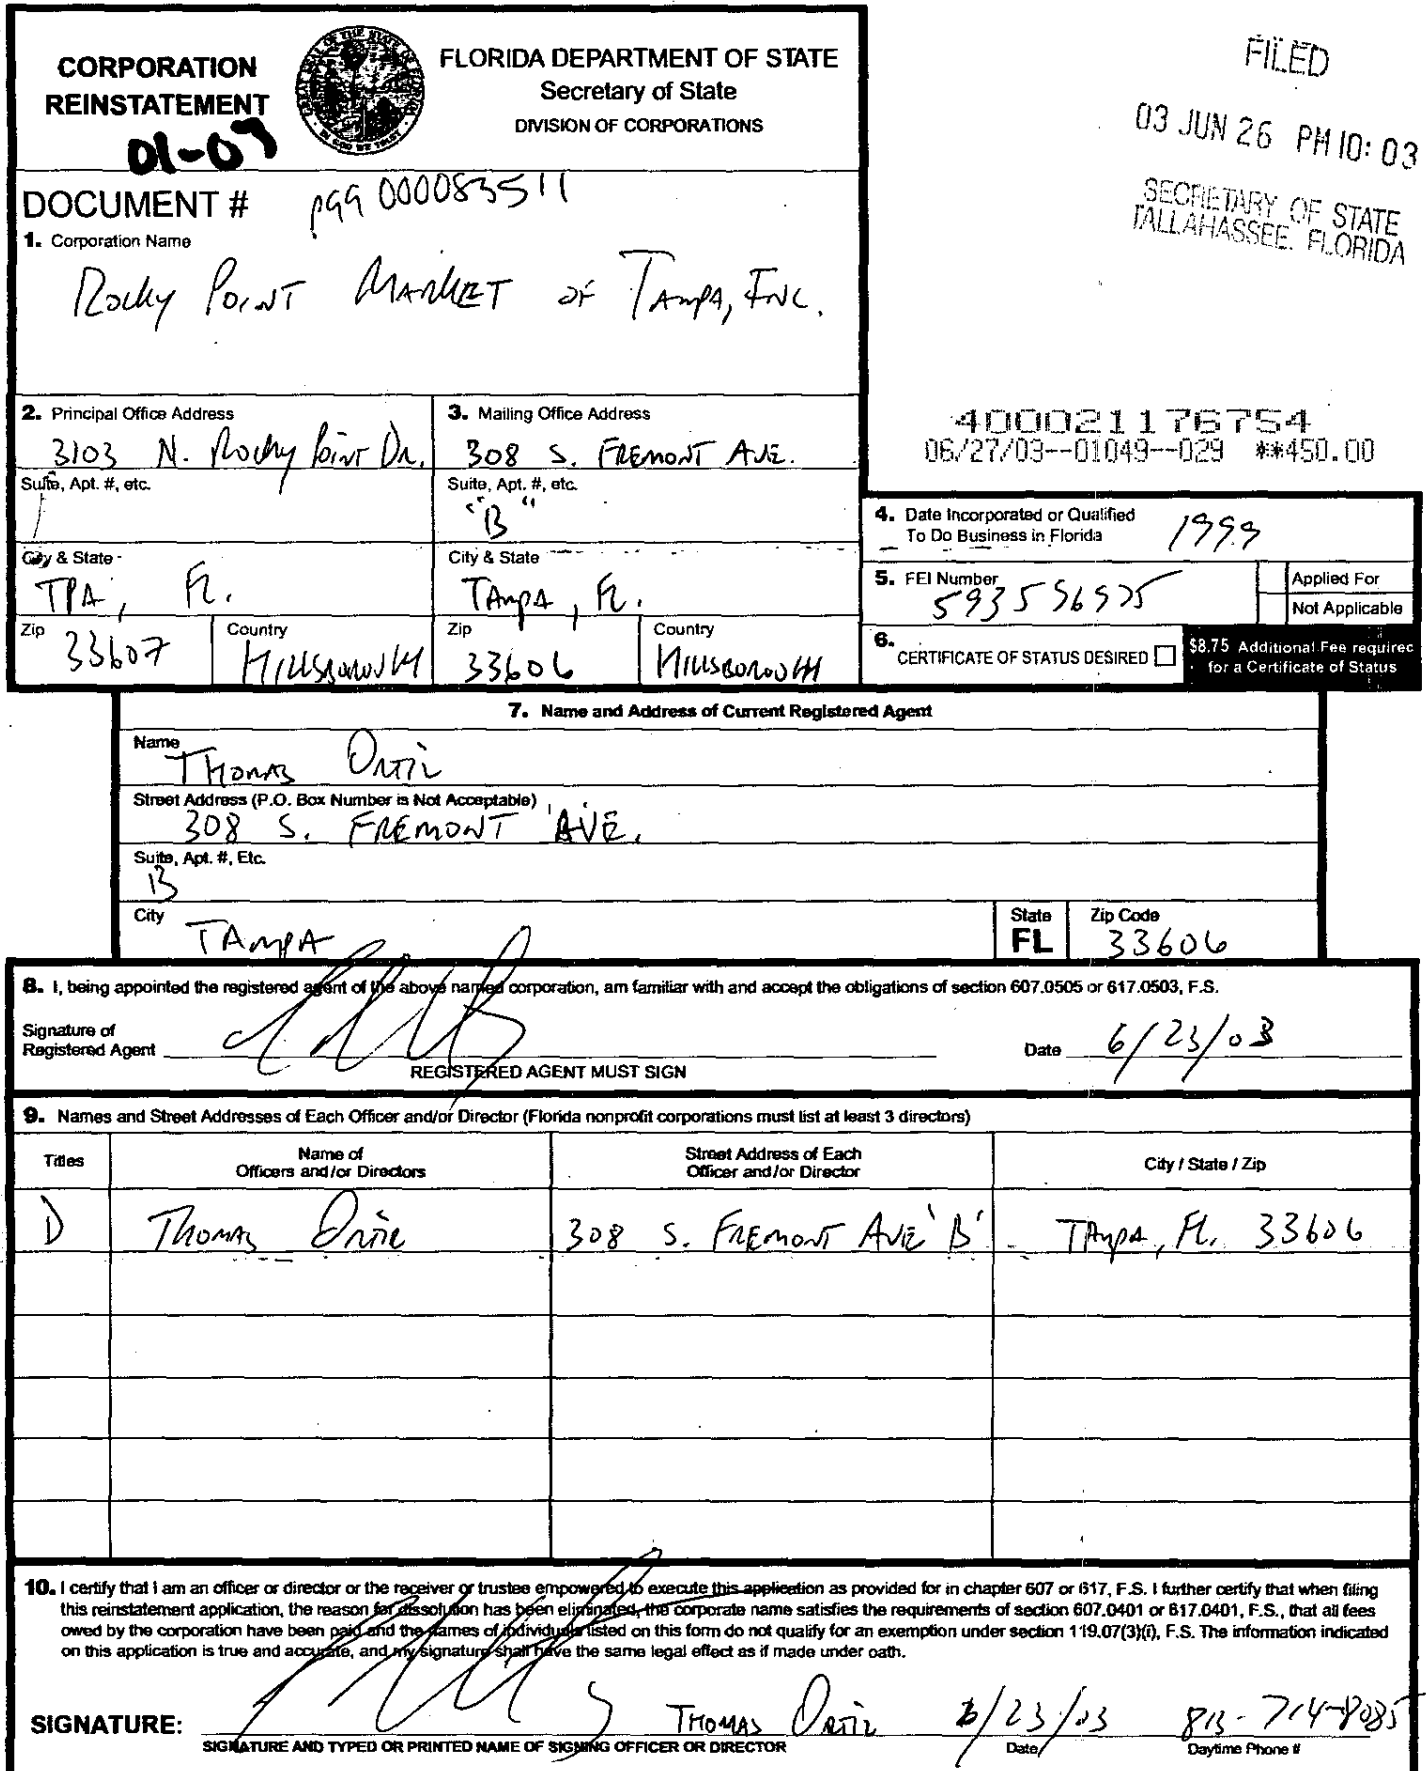 CORPORATION
REINSTATEMENT
01-03
FLORIDA DEPARTMENT OF STATE
Secretary of State
DIVISION OF CORPORATIONS
FILED
03 JUN 26 PM 10:03
SECRETARY OF STATE
TALLAHASSEE, FLORIDA
DOCUMENT # P99000083511
1. Corporation Name
Rocky Point Market of Tampa, Inc.
400021176754
06/27/03--01049--029 **450.00
2. Principal Office Address
3103 N. Rocky Point Dr.
Suite, Apt. #, etc.
City & State
TPA, FL.
Zip 33607
Country Hillsborough
3. Mailing Office Address
308 S. Fremont Ave.
Suite, Apt. #, etc.
"B"
City & State
Tampa, FL.
Zip 33606
Country Hillsborough
4. Date Incorporated or Qualified
To Do Business in Florida 1999
5. FEI Number
Applied For
Not Applicable
6. CERTIFICATE OF STATUS DESIRED
$8.75 Additional Fee required
for a Certificate of Status
7. Name and Address of Current Registered Agent
Name
Thomas Ortiz
Street Address (P.O. Box Number is Not Acceptable)
308 S. FREMONT AVE.
Suite, Apt. #, Etc.
B
City
TAMPA
State
FL
Zip Code
33606
8. I, being appointed the registered agent of the above named corporation, am familiar with and accept the obligations of section 607.0505 or 617.0503, F.S.
Signature of
Registered Agent
Date 6/23/03
REGISTERED AGENT MUST SIGN
9. Names and Street Addresses of Each Officer and/or Director (Florida nonprofit corporations must list at least 3 directors)
Titles
Name of
Officers and/or Directors
Street Address of Each
Officer and/or Director
City / State / Zip
D Thomas Ortiz 308 S. Fremont Ave 'B' Tampa, FL. 33606
10. I certify that I am an officer or director or the receiver or trustee empowered to execute this application as provided for in chapter 607 or 617, F.S. I further certify that when filing
this reinstatement application, the reason for dissolution has been eliminated, the corporate name satisfies the requirements of section 607.0401 or 617.0401, F.S., that all fees
owed by the corporation have been paid and the names of individuals listed on this form do not qualify for an exemption under section 119.07(3)(i), F.S. The information indicated
on this application is true and accurate, and my signature shall have the same legal effect as if made under oath.
SIGNATURE: Thomas Ortiz 6/23/03 813-714-8085
SIGNATURE AND TYPED OR PRINTED NAME OF SIGNING OFFICER OR DIRECTOR
Date
Daytime Phone #